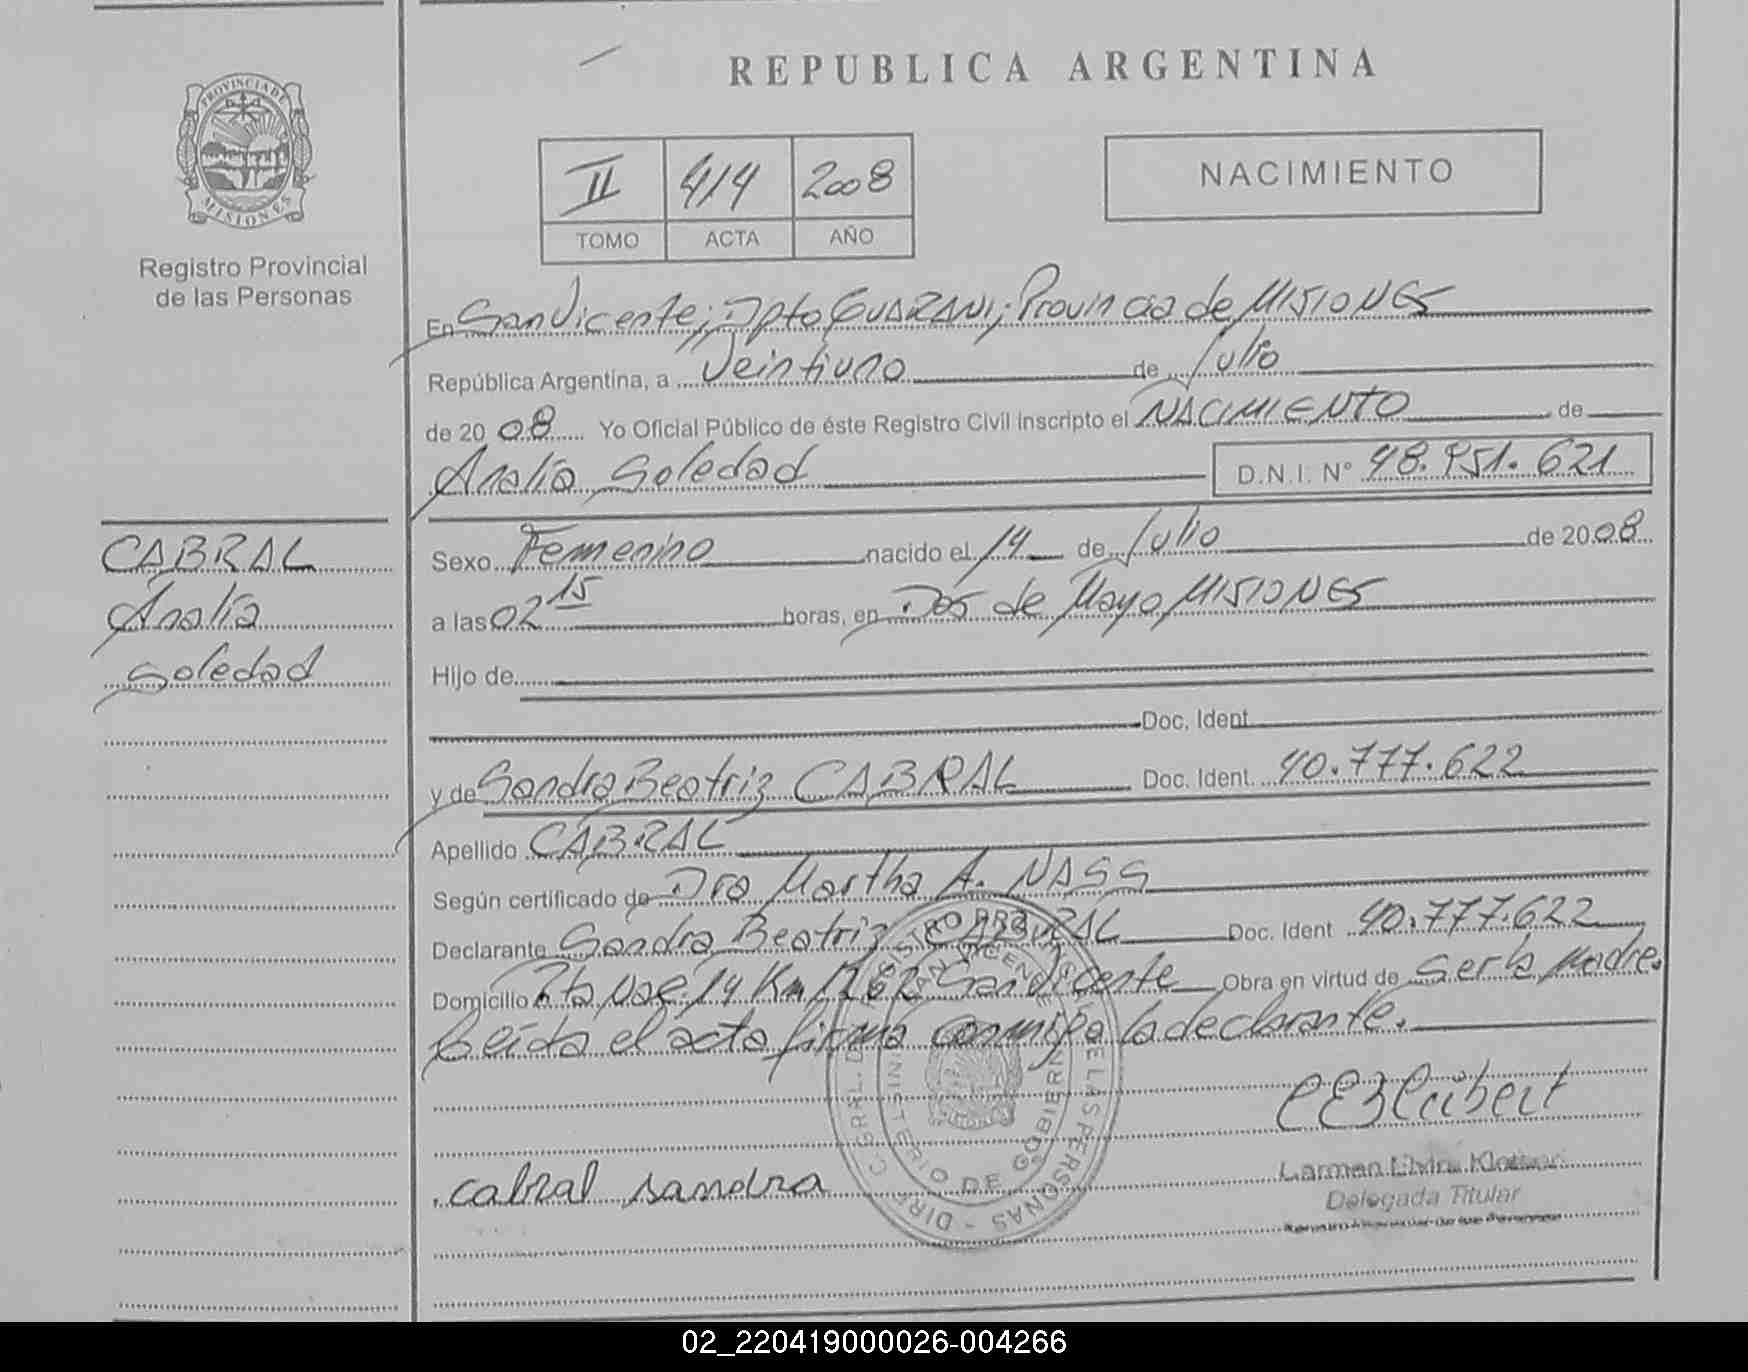 REPUBLICA ARGENTINA
PROVINCIA DE
MISIONES
Registro Provincial
de las Personas
II 414 2008
TOMO ACTA AÑO
NACIMIENTO
En San Vicente; Dpto GUARANI; Provincia de MISIONES
República Argentina, a Veintiuno de Julio
de 20 08 Yo Oficial Público de éste Registro Civil inscripto el NACIMIENTO de
Analía Soledad D.N.I. N° 48.951.621
CABRAL
Analía
Soledad
Sexo Femenino nacido el 14 de Julio de 20 08
a las 02 15 horas, en Dos de Mayo MISIONES
Hijo de
Doc. Ident.
y de Sandra Beatriz CABRAL Doc. Ident. 40.777.622
Apellido CABRAL
Según certificado de Dra Martha A. NASS
Declarante Sandra Beatriz CABRAL Doc. Ident 40.777.622
Domicilio Rta Nac. 14 Km San Vicente Obra en virtud de ser la madre.
Leída el acta firma conmigo la declarante.
cabral sandra
Carmen
Delegada Titular
MINISTERIO DE GOBIERNO
DE LAS PERSONAS
02_220419000026-004266